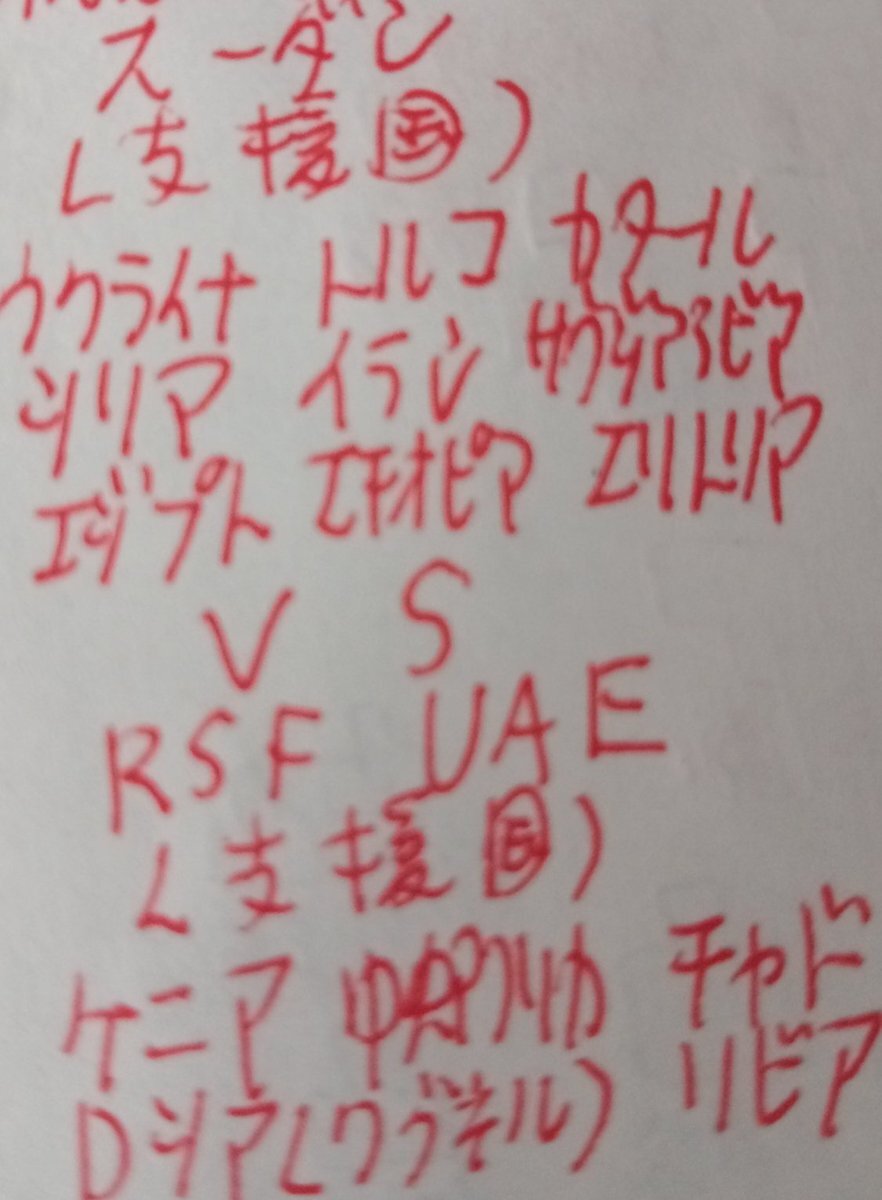 スーダン
(支援国)
ウクライナ トルコ カタール
シリア イラン サウジアラビア
エジプト エチオピア エリトリア
VS
RSF UAE
(支援国)
ケニア 中央アフリカ チャド
ロシア(ワグネル) リビア